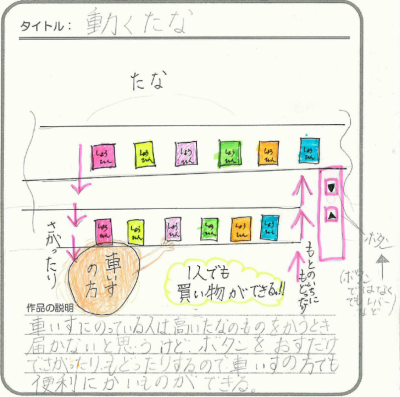 タイトル： 動くたな
たな
しょうひん しょうひん しょうひん しょうひん しょうひん しょうひん
▼
▲
しょうひん しょうひん しょうひん しょうひん しょうひん しょうひん
さがったり
もとのいちにもどったり
ボタン
(ボタンではなくてもレバーなど
車いすの方
1人でも
買い物ができる!!
作品の説明
車いすにのっている人は高いたなのものをかうとき
届かないと思うけど、ボタンをおすだけ
でさがったりもどったりするので車いすの方でも
便利にかいものができる。